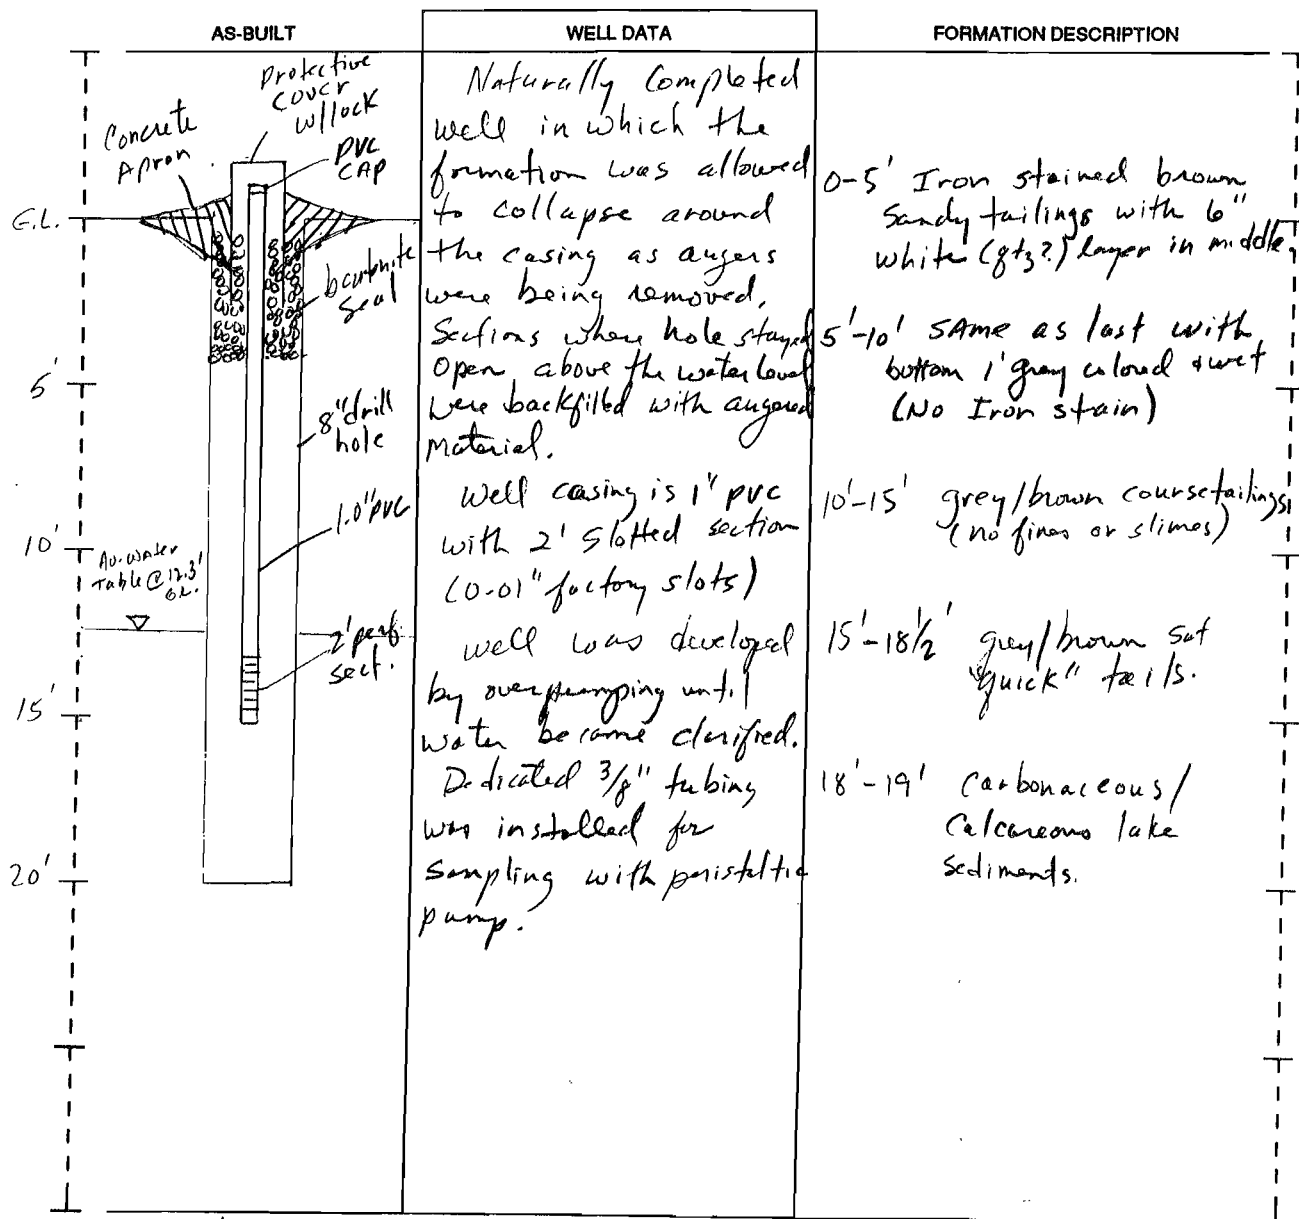 AS-BUILT
Protective
cover
w/lock
Concrete
Apron
PVC
CAP
G.L.
bentonite
seal
5'
8" drill
hole
1.0" PVC
10'
Av. water
Table @ 12.3'
G.L.
2' perf
sect.
15'
20'
WELL DATA
Naturally Completed
well in which the
formation was allowed
to collapse around
the casing as augers
were being removed.
Sections where hole stayed
Open above the water level
were backfilled with augered
Material.
Well casing is 1" pvc
with 2' slotted section
(0.01" factory slots)
Well was developed
by overpumping until
water became clarified.
Dedicated 3/8" tubing
was installed for
Sampling with peristaltic
pump.
FORMATION DESCRIPTION
0-5' Iron stained brown
Sandy tailings with 6"
white (qtz?) layer in middle,
5'-10' SAME as last with
bottom 1' gray colored & wet
(No Iron stain)
10'-15' grey/brown course tailings
(no fines or slimes)
15'-18 1/2' grey/brown sat
"quick" tails.
18'-19' Carbonaceous/
Calcareous lake
sediments.